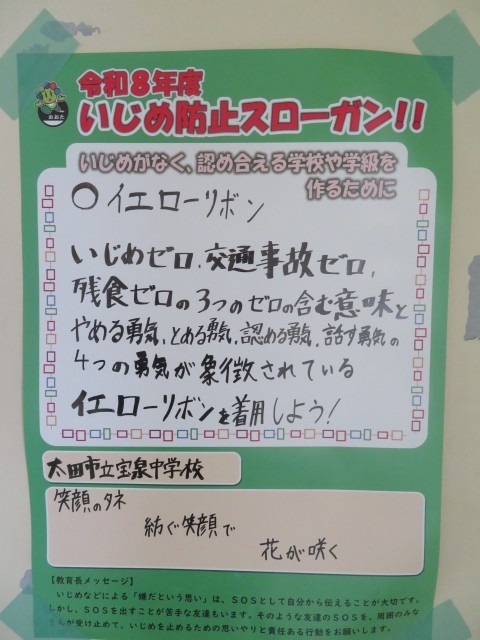 おおた
令和8年度
いじめ防止スローガン!!
いじめがなく、認め合える学校や学級を
作るために
○イエローリボン
いじめゼロ、交通事故ゼロ、
残食ゼロの3つのゼロの含む意味と
やめる勇気、とめる勇気、認める勇気、話す勇気の
4つの勇気が象徴されている
イエローリボンを着用しよう!
太田市立宝泉中学校
笑顔のタネ
紡ぐ笑顔で
花が咲く
【教育長メッセージ】
いじめなどによる「嫌だという思い」は、SOSとして自分から伝えることが大切です。
しかし、SOSを出すことが苦手な友達もいます。そのような友達のSOSを、周囲のみな
さんが受け止めて、いじめを止めるための思いやりと責任ある行動をお願いします。